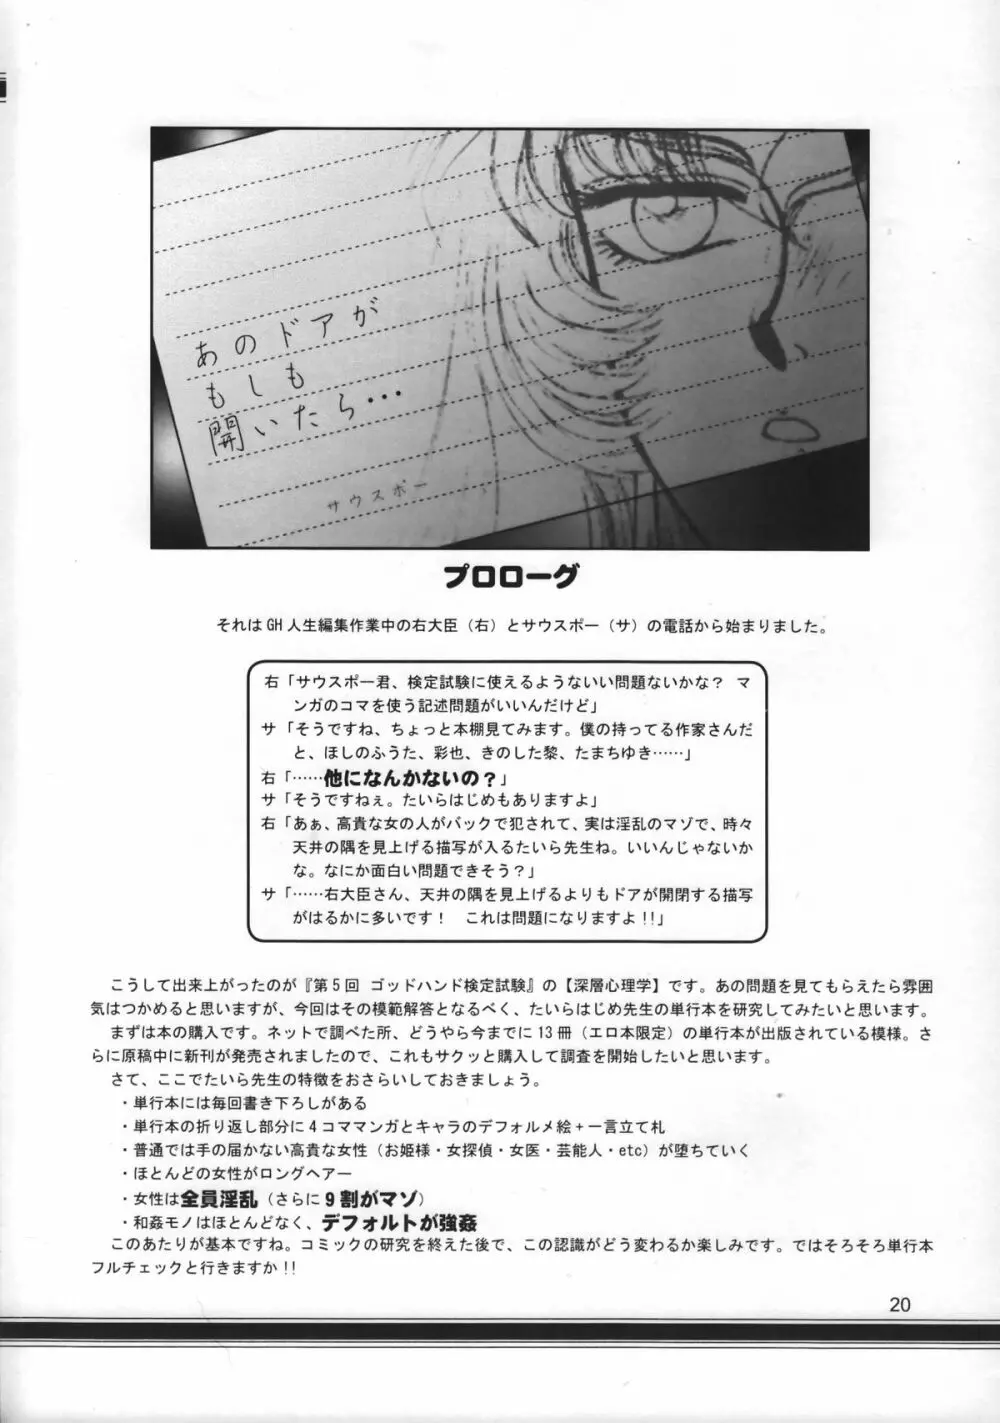 あのドアが
もしも
開いたら…
サウスポー
プロローグ
それはGH人生編集作業中の右大臣（右）とサウスポー（サ）の電話から始まりました。
右「サウスポー君、検定試験に使えるようないい問題ないかな？　マ
ンガのコマを使う記述問題がいいんだけど」
サ「そうですね、ちょっと本棚見てみます。僕の持ってる作家さんだ
と、ほしのふうた、彩也、きのした黎、たまちゆき……」
右「……他になんかないの？」
サ「そうですねぇ。たいらはじめもありますよ」
右「あぁ、高貴な女の人がバックで犯されて、実は淫乱のマゾで、時々
天井の隅を見上げる描写が入るたいら先生ね。いいんじゃないか
な。なにか面白い問題できそう？」
サ「……右大臣さん、天井の隅を見上げるよりもドアが開閉する描写
がはるかに多いです！　これは問題になりますよ!!」
こうして出来上がったのが『第５回 ゴッドハンド検定試験』の【深層心理学】です。あの問題を見てもらえたら雰囲
気はつかめると思いますが、今回はその模範解答となるべく、たいらはじめ先生の単行本を研究してみたいと思います。
まずは本の購入です。ネットで調べた所、どうやら今までに13冊（エロ本限定）の単行本が出版されている模様。さ
らに原稿中に新刊が発売されましたので、これもサクッと購入して調査を開始したいと思います。
さて、ここでたいら先生の特徴をおさらいしておきましょう。
・単行本には毎回書き下ろしがある
・単行本の折り返し部分に４コママンガとキャラのデフォルメ絵＋一言立て札
・普通では手の届かない高貴な女性（お姫様・女探偵・女医・芸能人・etc）が堕ちていく
・ほとんどの女性がロングヘアー
・女性は全員淫乱（さらに９割がマゾ）
・和姦モノはほとんどなく、デフォルトが強姦
このあたりが基本ですね。コミックの研究を終えた後で、この認識がどう変わるか楽しみです。ではそろそろ単行本
フルチェックと行きますか!!
20